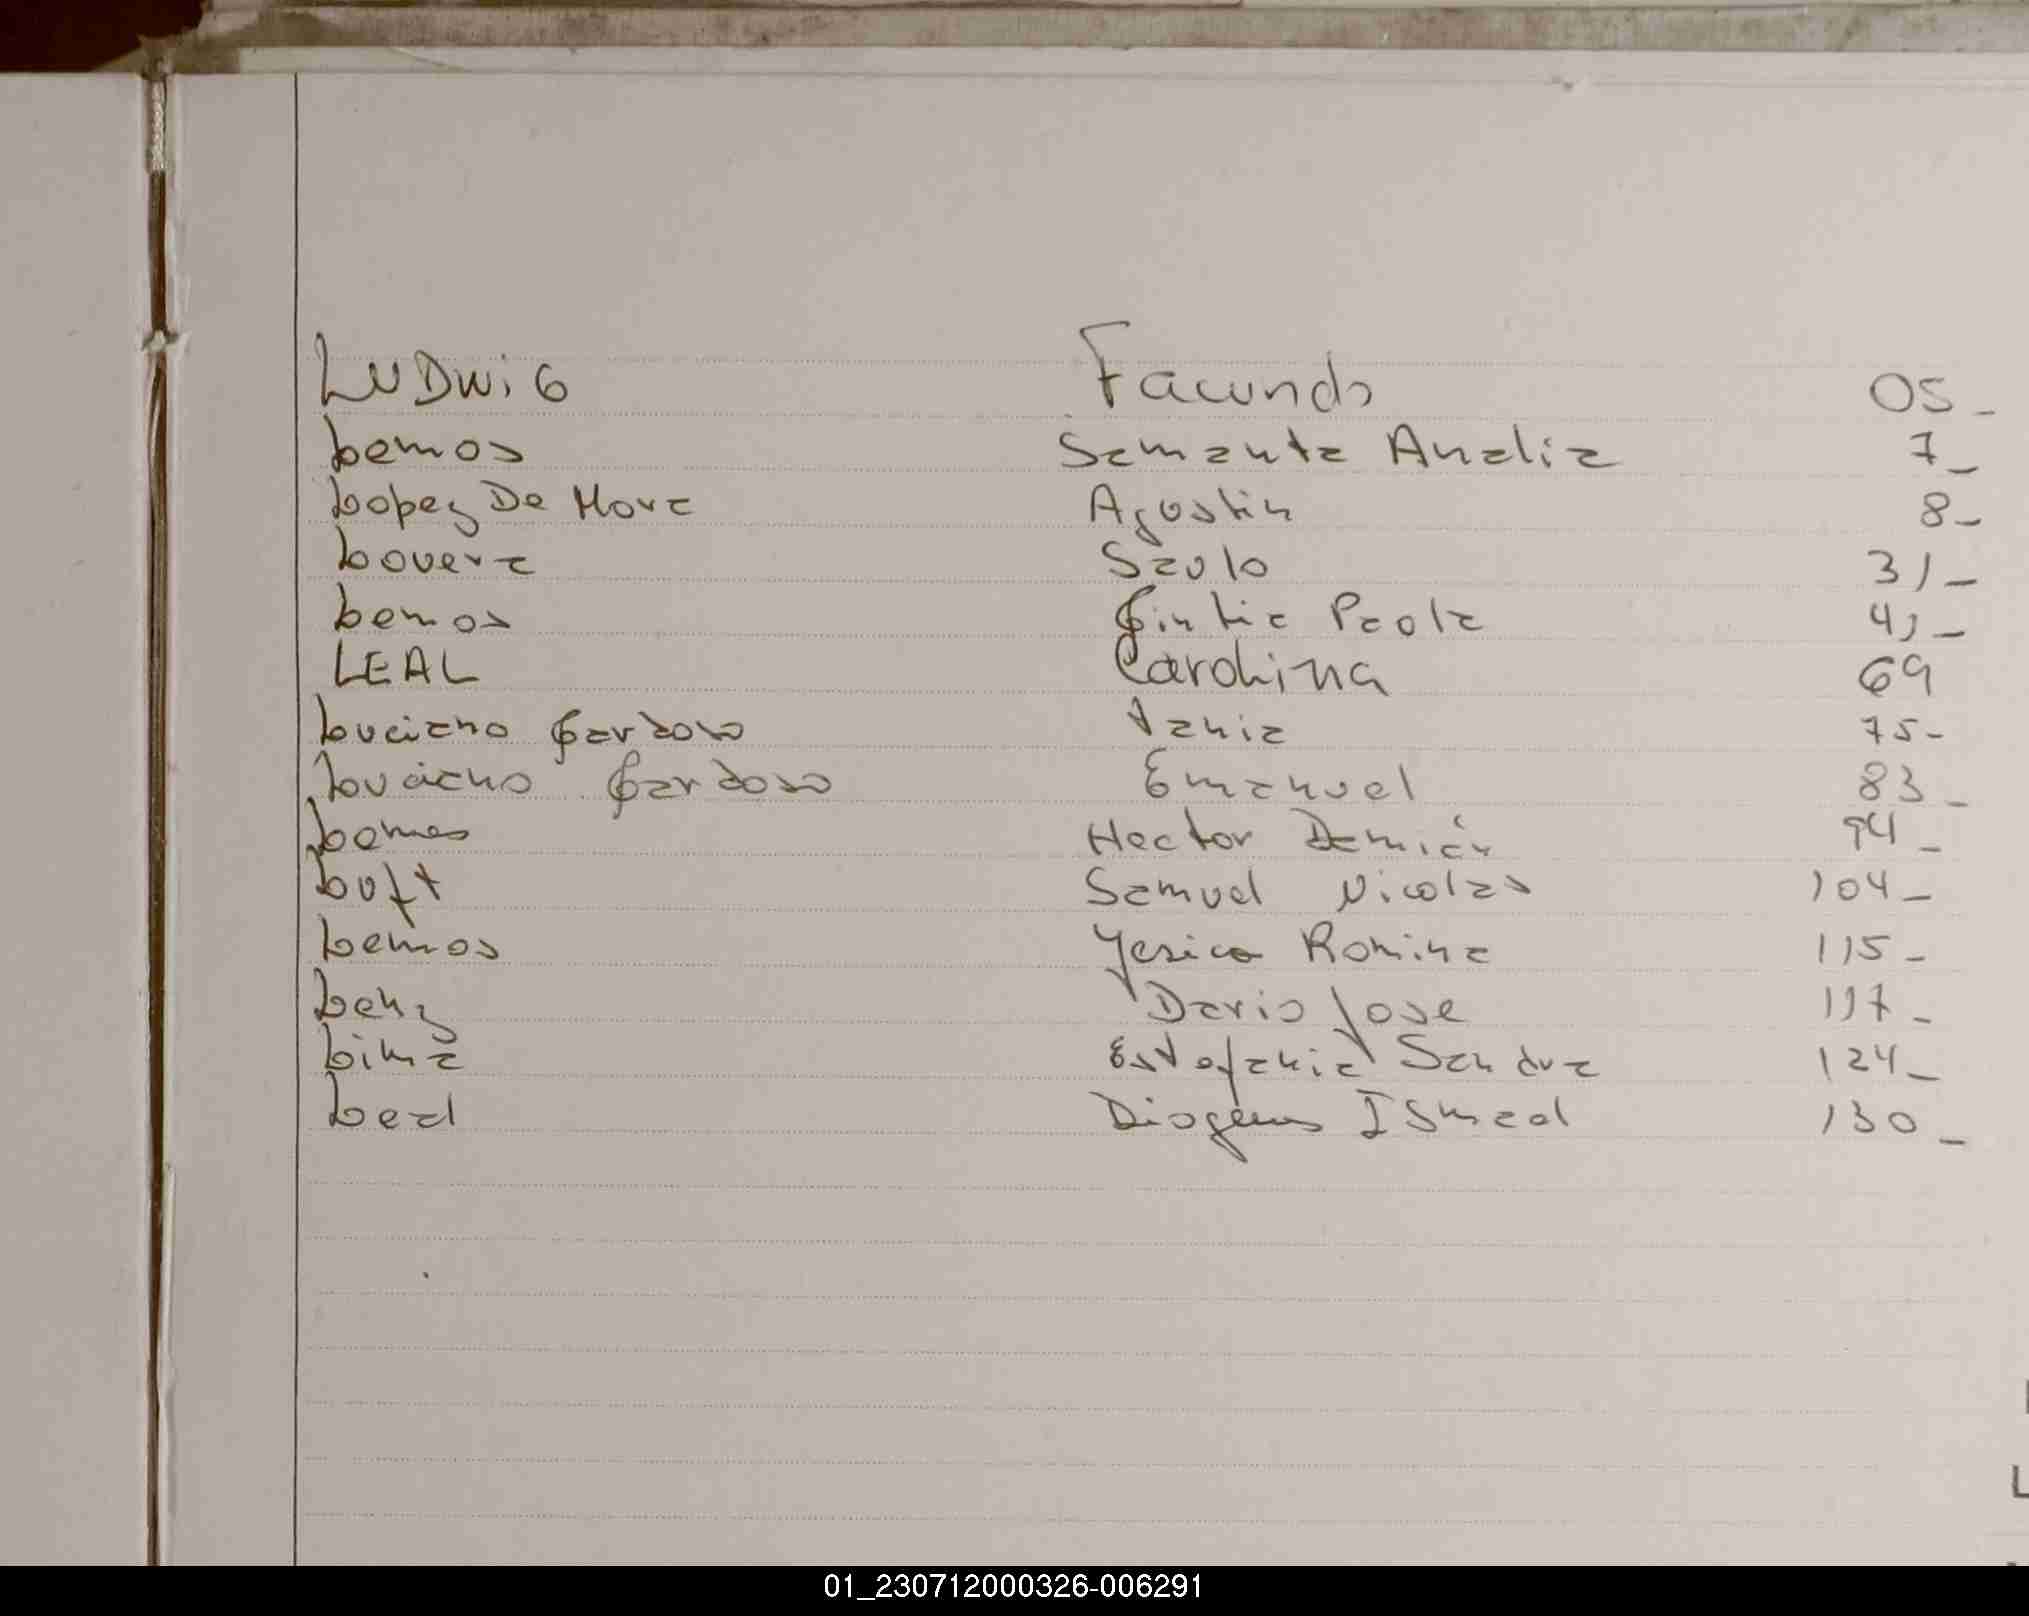 LUDWiG Facundo 05_
Lemos Samanta Analia 7_
Lopez De Mora Agostin 8_
Lovera Saulo 31_
Lemos Cintia Paola 41_
LEAL Carolina 69
Luciano Cardoso Tania 75-
Luciano Cardoso Emanuel 83_
Lemes Hector Damián 94_
Luft Samuel Nicolas 104_
Lemos Yesica Romina 115_
Lenz Dario Jose 117_
Lima Estefania Sandra 124_
Leal Diogenes Ismael 130_
01_230712000326-006291